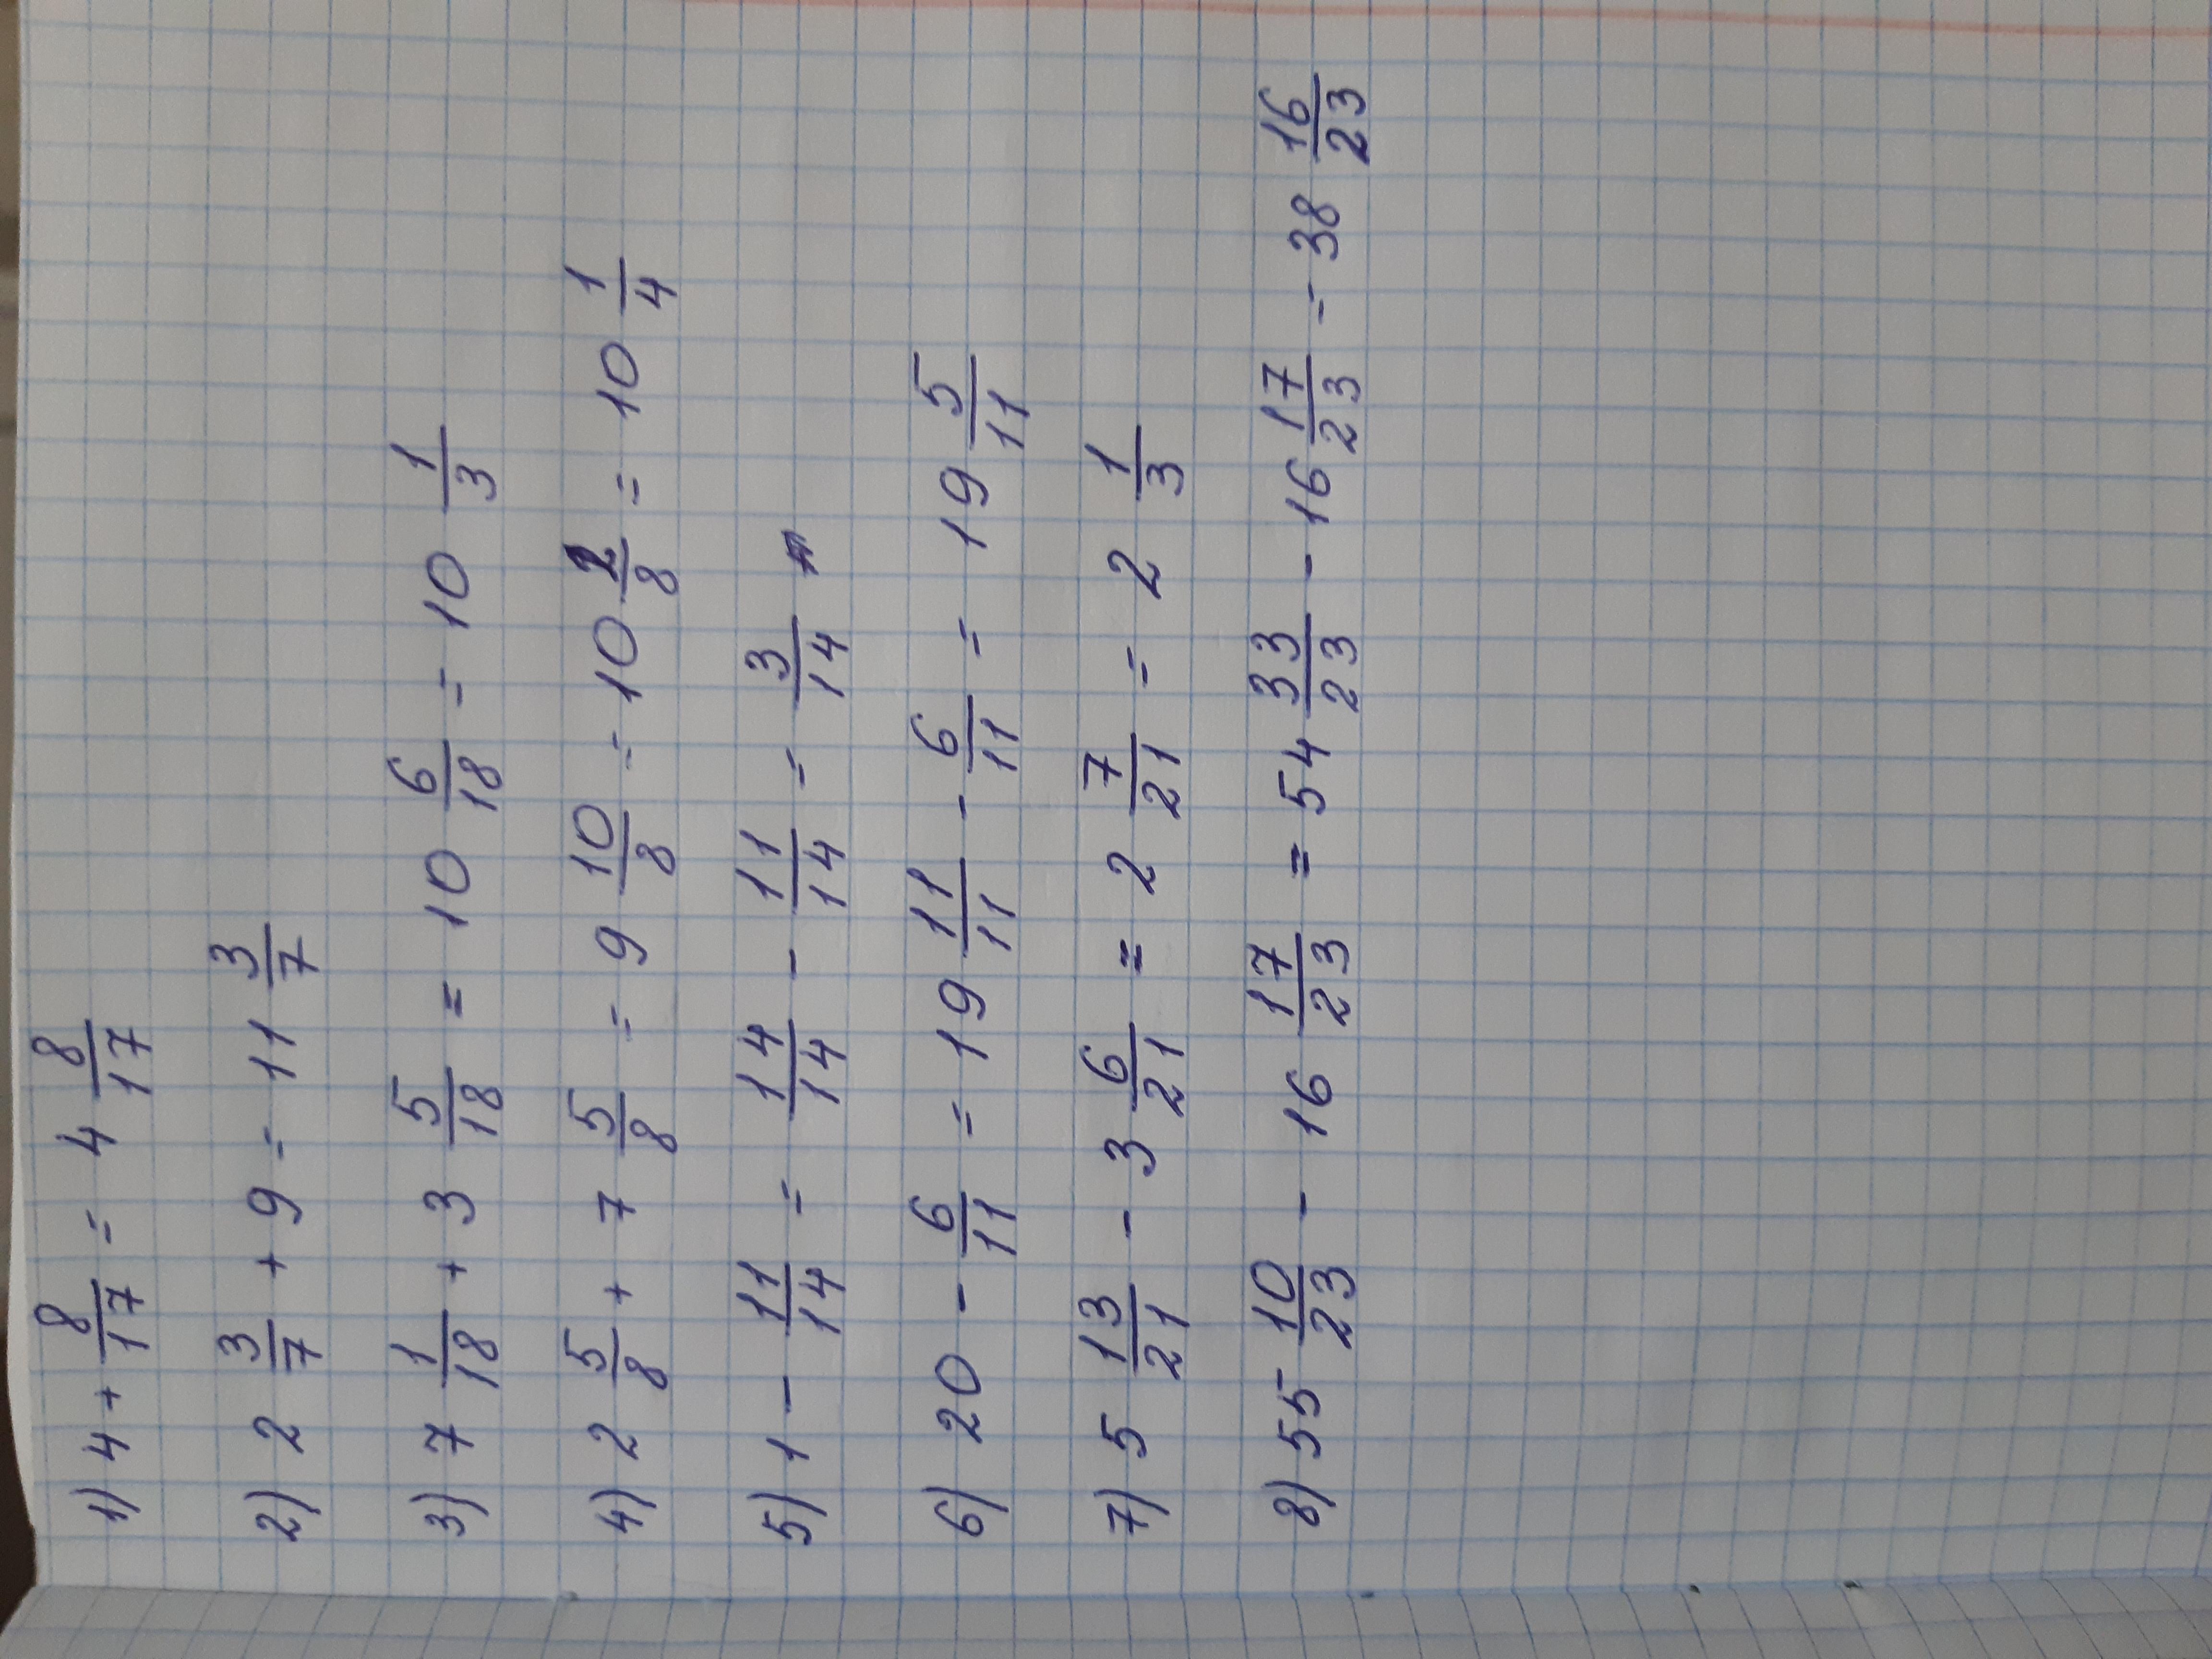 1) 4 + 8/17 = 4 8/17
2) 2 3/7 + 9 = 11 3/7
3) 7 1/18 + 3 5/18 = 10 6/18 = 10 1/3
4) 2 5/8 + 7 5/8 = 9 10/8 = 10 2/8 = 10 1/4
5) 1 - 11/14 = 14/14 - 11/14 = 3/14
6) 20 - 6/11 = 19 11/11 - 6/11 = 19 5/11
7) 5 13/21 - 3 6/21 = 2 7/21 = 2 1/3
8) 55 10/23 - 16 17/23 = 54 33/23 - 16 17/23 = 38 16/23